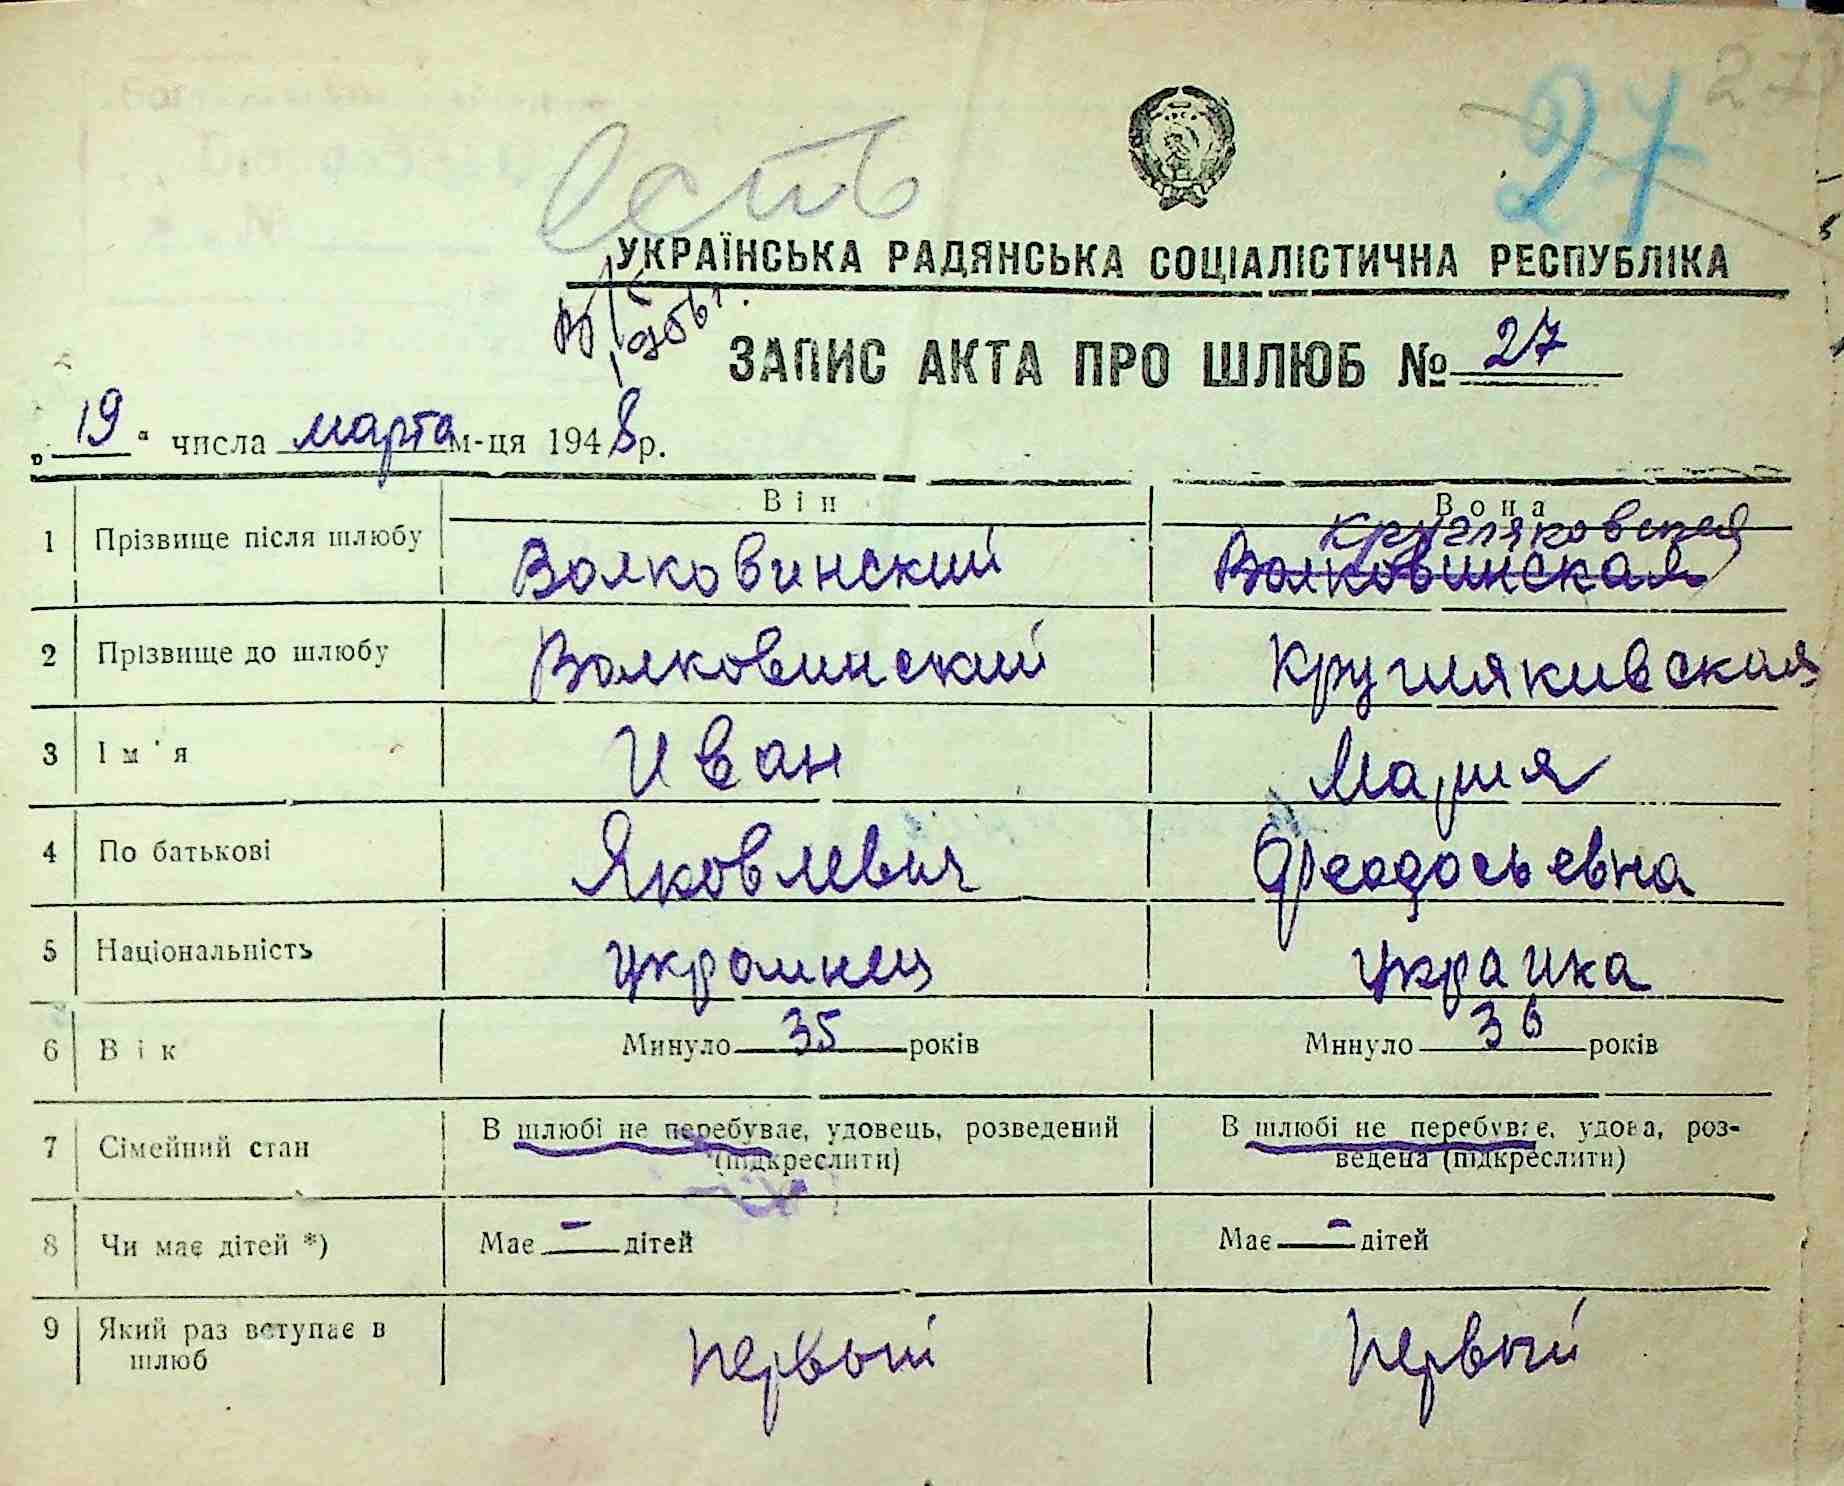 27
27
есть
УКРАЇНСЬКА РАДЯНСЬКА СОЦІАЛІСТИЧНА РЕСПУБЛІКА
ЗАПИС АКТА ПРО ШЛЮБ № 27
„19“ числа марта м-ця 1948 р.
Він Вона
Кругляковская
1 Прізвище після шлюбу Волковинский Волковинская
2 Прізвище до шлюбу Волковинский Круглякивская
3 Ім'я Иван Мария
4 По батькові Яковлевич Феодосьевна
5 Національність украинец украинка
6 Вік Минуло 35 років Минуло 36 років
7 Сімейний стан В шлюбі не перебуває, удовець, розведений В шлюбі не перебуває, удова, роз-
(підкреслити) ведена (підкреслити)
8 Чи має дітей *) Має – дітей Має – дітей
9 Який раз вступає в шлюб первый первый